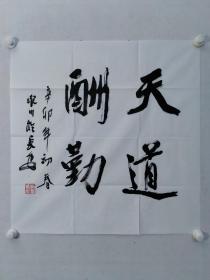 天道
酬勤
辛卯年初春